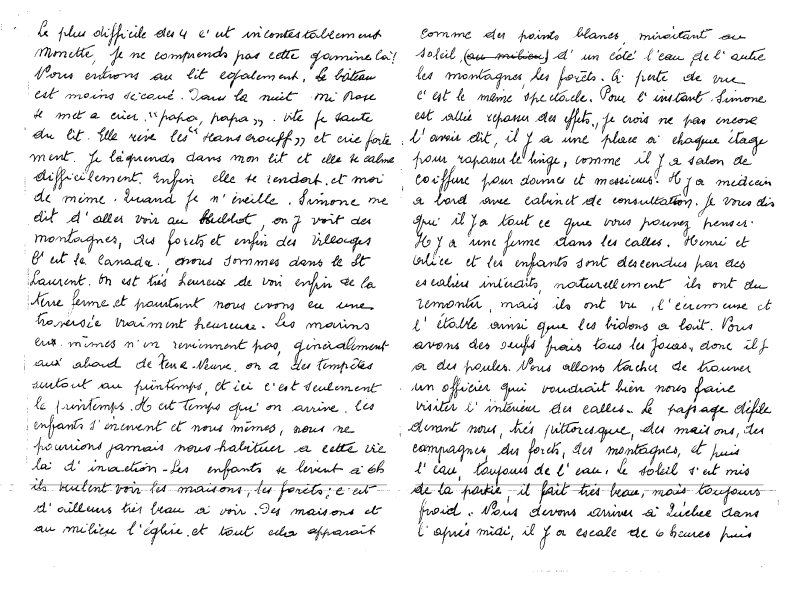 Le plus difficile des 4 c'est incontestablement
Monette, je ne comprends pas cette gamine la!
Nous entrons au lit egalement, le bâteau
est moins secoué. Dans la nuit Mi Rose
se met a crier, "papa, papa", vite je saute
du lit. Elle reve les et crie forte
ment. Je la prends dans mon lit et elle se calme
difficilement. Enfin elle se rendort, et moi
de même. Quand je m'éveille. Simone me
dit d'aller voir au Hublot, on y voit des
montagnes, des forets et enfin des villages
C'est le Canada. nous sommes dans le St
Laurent. On est très heureux de voir enfin de la
terre ferme et pourtant nous avons eu une
traversée vraiment heureuse. Les marins
eux mêmes n'en reviennent pas, généralement
aux abord de Terre-Neuve. on a des tempêtes
surtout au printemps, et ici c'est seulement
le printemps. Il est temps qu'on arrive. les
enfants s'énervent et nous mêmes, nous ne
pourrions jamais nous habituer a cette vie
là d'inaction - Les enfants se levent à 6h
ils veulent voir les maisons, les forêts; c'est
d'ailleurs très beau a voir. Des maisons et
au milieu l'église et tout cela apparaît
comme des points blancs, miroitant au
soleil, (au milieu) d'un côté l'eau de l'autre
les montagnes, les forêts. A perte de vue
c'est le même spectacle. Pour l'instant. Simone
est allée repasser des effets, je crois ne pas encore
l'avoir dit, il y a une place a chaque étage
pour rapasser le linge, comme il y a salon de
coiffure pour dames et messieurs. Il y a medecin
a bord avec cabinet de consultation. Je vous dis
qu'il y a tout ce que vous pouvez penser.
Il y a une ferme dans les calles. Henri et
Alice et les enfants sont descendus par des
escaliers interdits, naturellement ils ont du
remonter, mais ils ont vu, l'écremeuse et
l'étable ainsi que les bidons a lait. Nous
avons des oeufs frais tous les jours, donc il y
a des poules. Nous allons tacher de trouver
un officier qui voudrait bien nous faire
visiter l'interieur des calles. Le paysage défile
devant nous, très pittoresque, des maisons, des
campagnes des forets, des montagnes, et puis
l'eau, toujours de l'eau. le soleil s'est mis
de la partie, il fait très beau, mais toujours
froid. Nous devons arriver à Québec dans
l'après midi, il y a escale de 6 heures puis